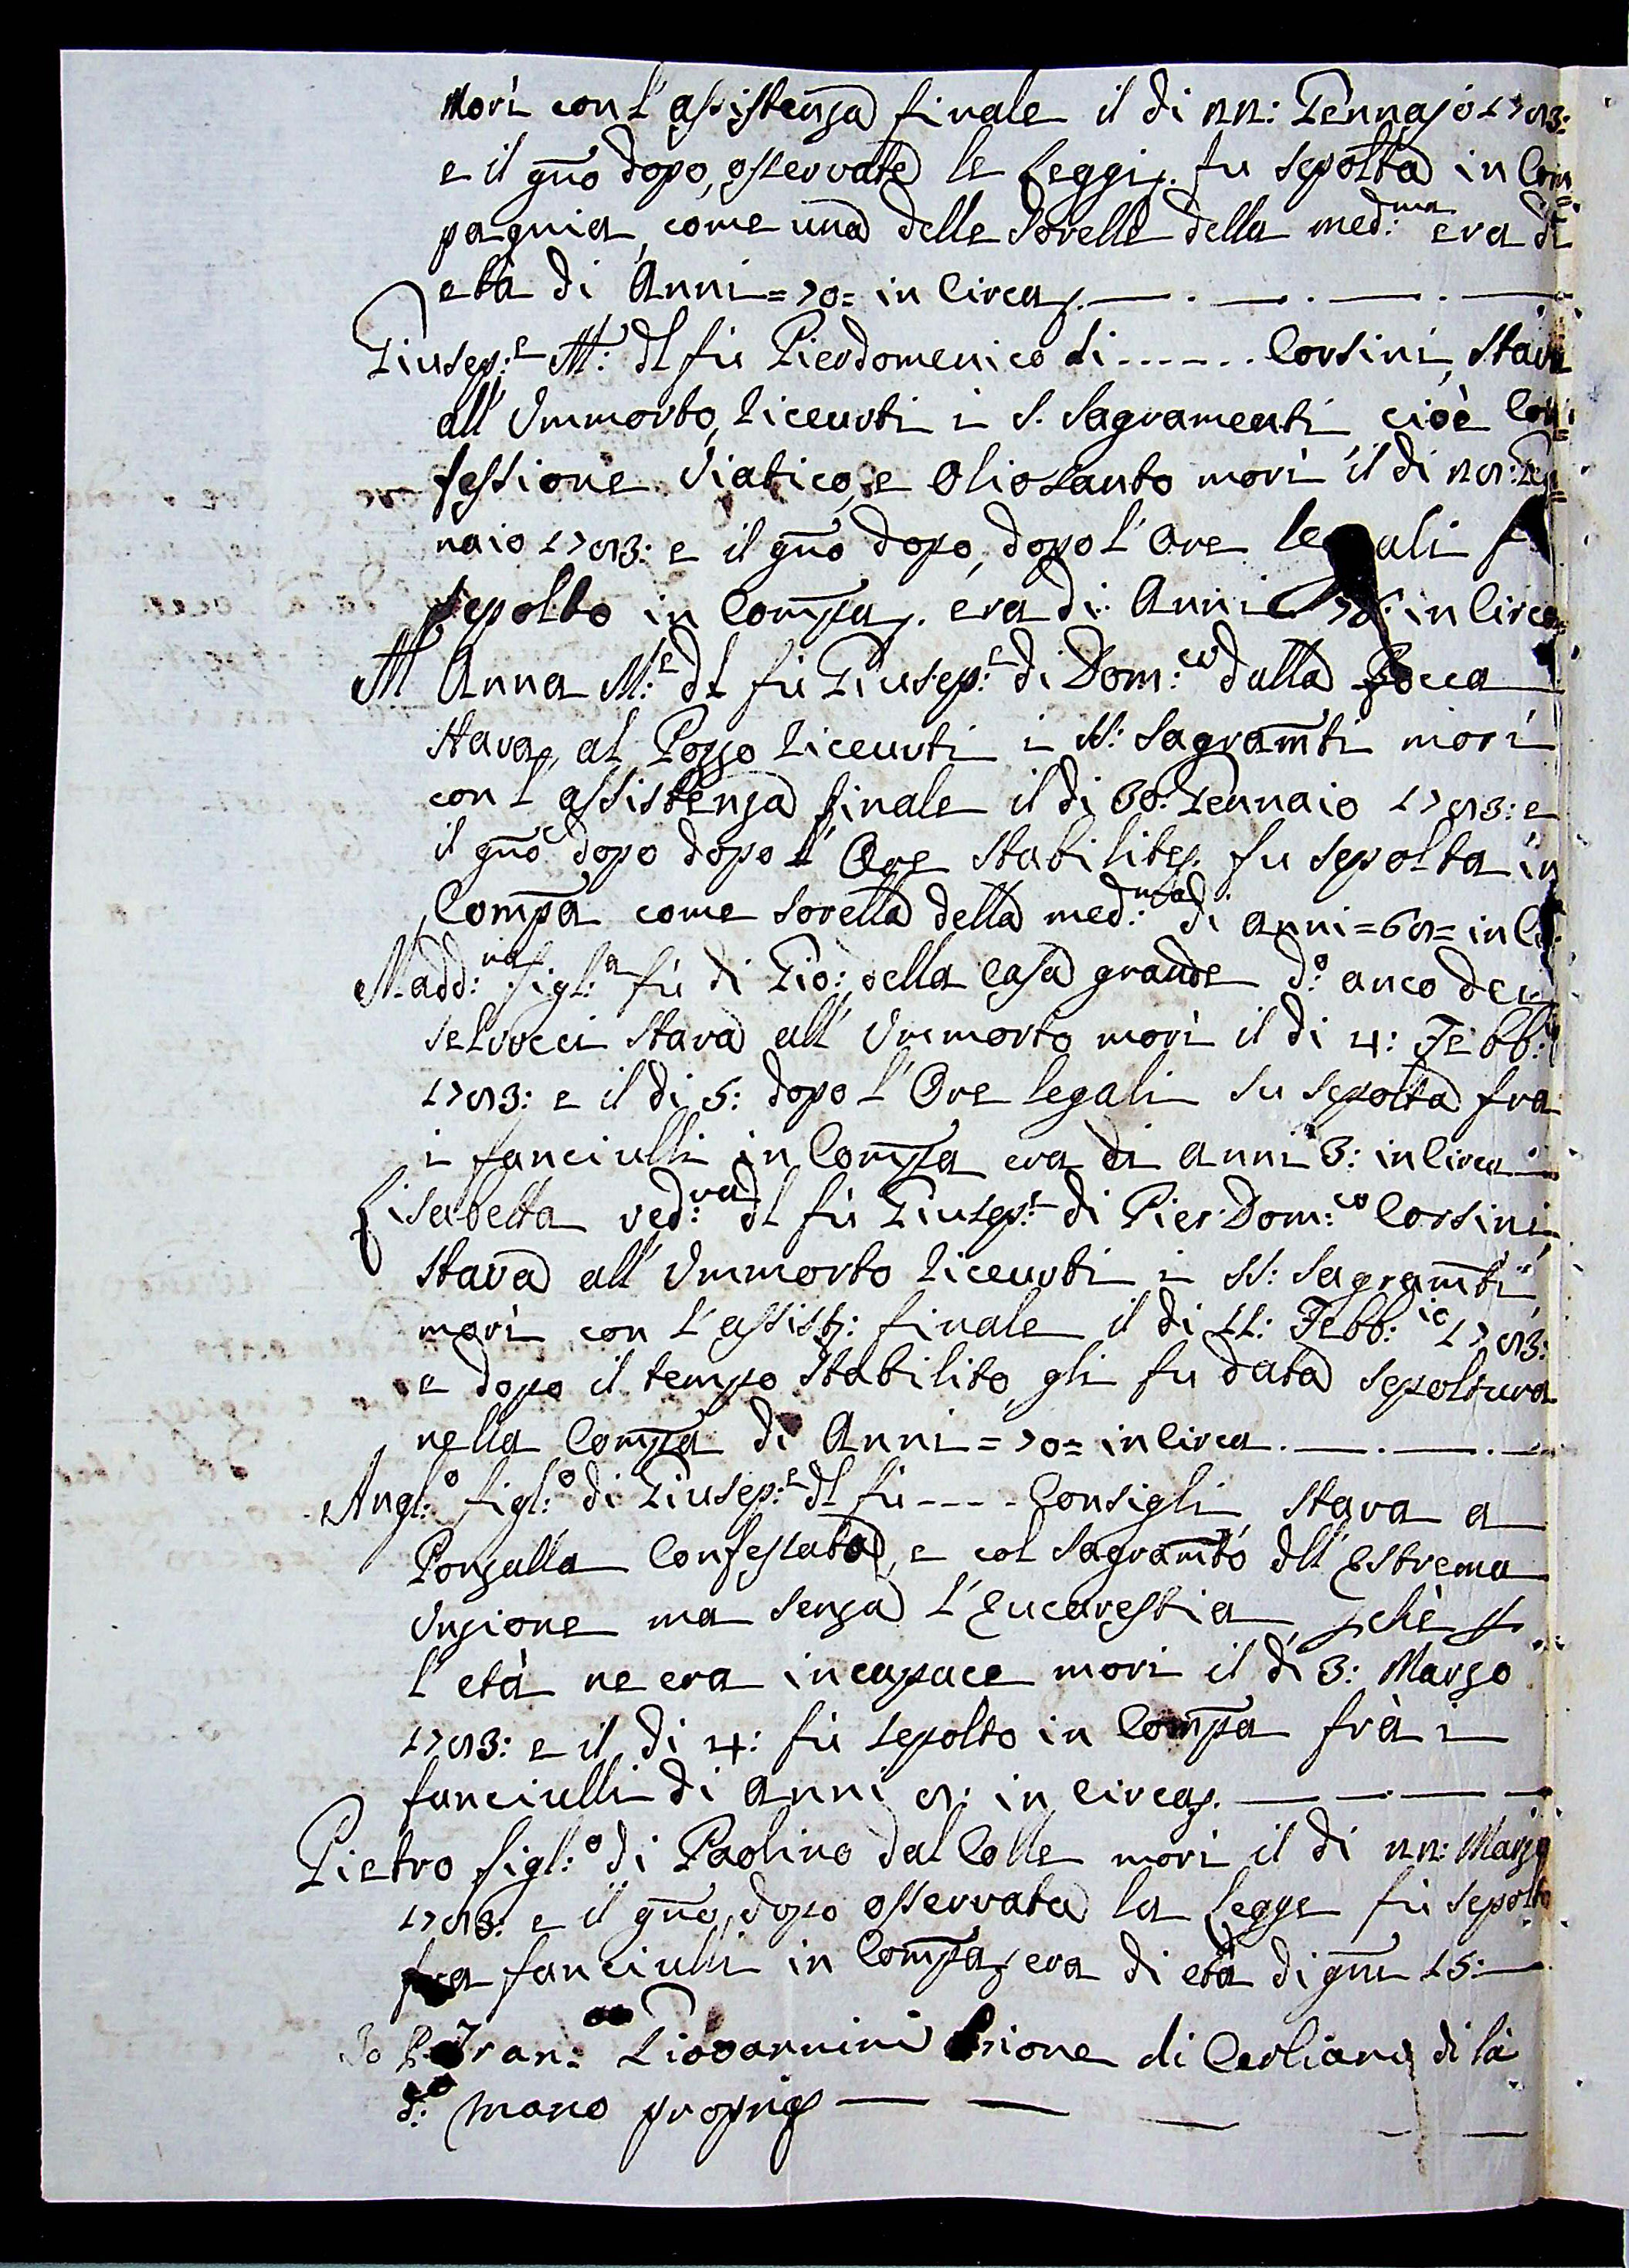 Morì con l'assistenza finale il di 22: Gennajo 1793:
e il gno dopo, osservate le Leggi, fu sepolta in Com=
pagnia, come una delle Sorelle della med:ma era di
età di Anni=70= in Circa
Giusep:e M: dl fù Pierdomenico di ------ Corsini, Stava
all' Ummorto, Riceuti i S. Sagramenti cioè Con=
fessione Viatico, e Olio Santo morì il di 29: Gen=
naio 1793: e il gno dopo, dopo l'Ore legali
sepolto in Compa, era di Anni in Circa
M Anna M:e dl fù Giusep:e di Dom:co dalla Rocca
stava, al Pozzo Riceuti i SS: Sagramti morì
con l'assistenza finale il di 30: Gennaio 1793: e
il gno dopo dopo l'Ore stabilite, fu sepolta in
Compa come Sorella della med:ma di anni=69= in Ci
Madd:na figl:a fù di Gio: della Casa grande d:o anco dei
Selvucci Stava all' Ummorto morì il di 4: Febb:
1793: e il di 5: dopo l'Ore legali fu sepolta fra
i fanciulli in Compa era di anni 3: in Circa
Lisabetta ved:va dl fù Giusep:e di Pier Dom:co Corsini
Stava all' Ummorto Riceuti i SS: Sagramti,
morì con l'assist: finale il di 11: Febb:io 1793:
e dopo il tempo Stabilito, gli fu data sepoltura
nella Compa di Anni=70= in Circa
Angl:o figl:o di Giusep:e dl fù ---- Consigli, stava a
Ponzalla Confessato, e col Sagramto dll' Estrema
Unzione ma senza l'Eucarestia, pchè p
l'età ne era incapace morì il di 3: Marzo
1793: e il di 4: fù sepolto in Compa frà i
fanciulli di anni 9: in Circa
Pietro figl:o di Paolino dal Colle morì il di 22: Marzo
1793: e il gno, dopo osservata la Legge fù sepolto
fra fanciulli in Compa, era di età di gni 15:
Io P. Fran:co Giovannini Prione di Cerliano, di la
d:o mano propria